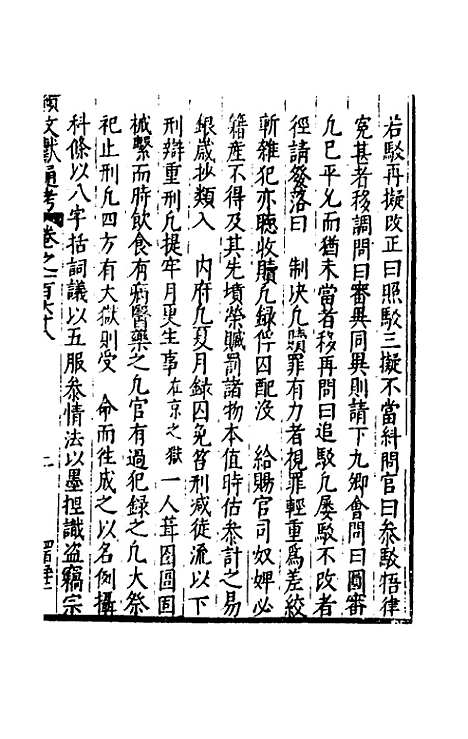 若駁再擬改正曰照駁三擬不當糾問官曰叅駁牾律
寃甚者移調問曰審異同異則請下九卿會問曰圓審
凡巳平允而猶未當者移再問曰追駁凡屡駁不改者
徑請發落曰 制决凡贖罪有力者視罪輕重爲差絞
斬雜犯亦聴收贖凡録俘囚配没 給賜官司奴婢必
籍産不得及其先墳榮贓罰諸物本值時估叅計之易
銀歳抄類入 内府凡夏月録囚免笞刑减徒流以下
刑辯重刑凡提牢月更生事在京之獄一人葺囹圄固
械繫而時飲食有病醫藥之凡官有過犯録之凡大祭
祀止刑凡四方有大獄則受 命而徃成之以名例攝
科條以八字括詞議以五服叅情法以墨揑識盗竊宗
文獻通考 卷之一百六十八